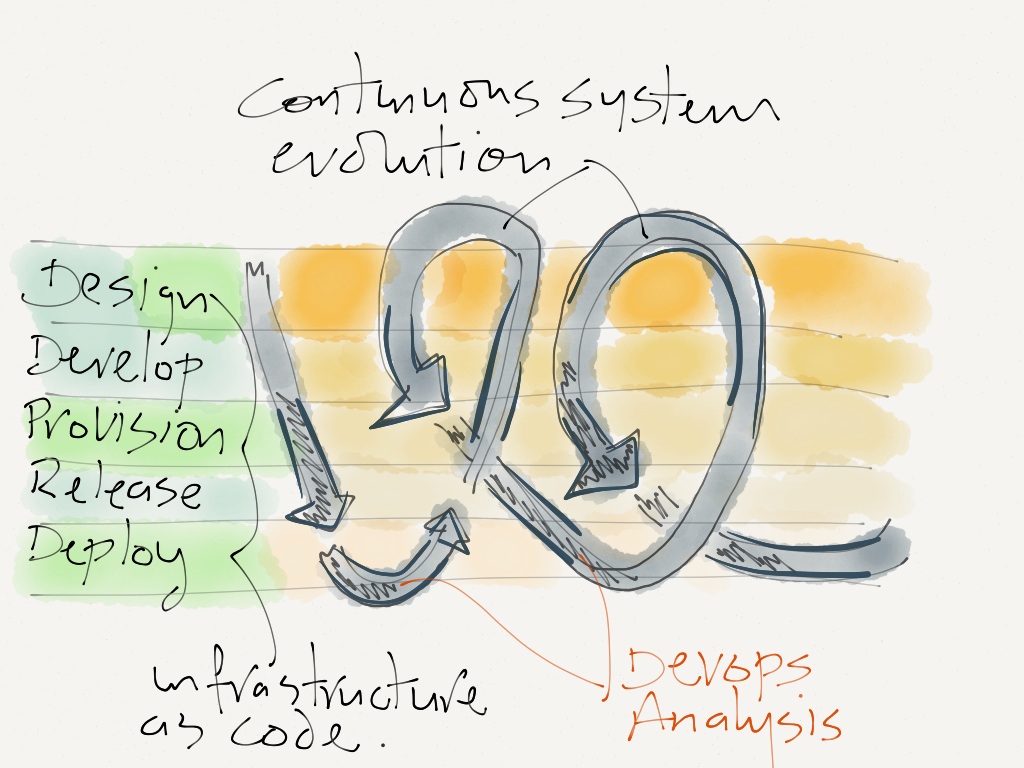 Continuous system
evolution
Design
Develop
Provision
Release
Deploy
infrastructure
as code.
Devops
Analysis